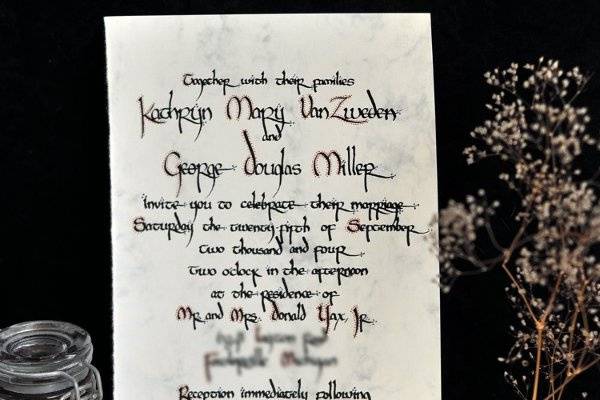 Together with their families
Kathryn Mary VanZweden
and
George Douglas Miller
invite you to celebrate their marriage
Saturday the twenty-fifth of September
two thousand and four
two o'clock in the afternoon
at the residence of
Mr. and Mrs. Donald Yax, Jr.
Reception immediately following